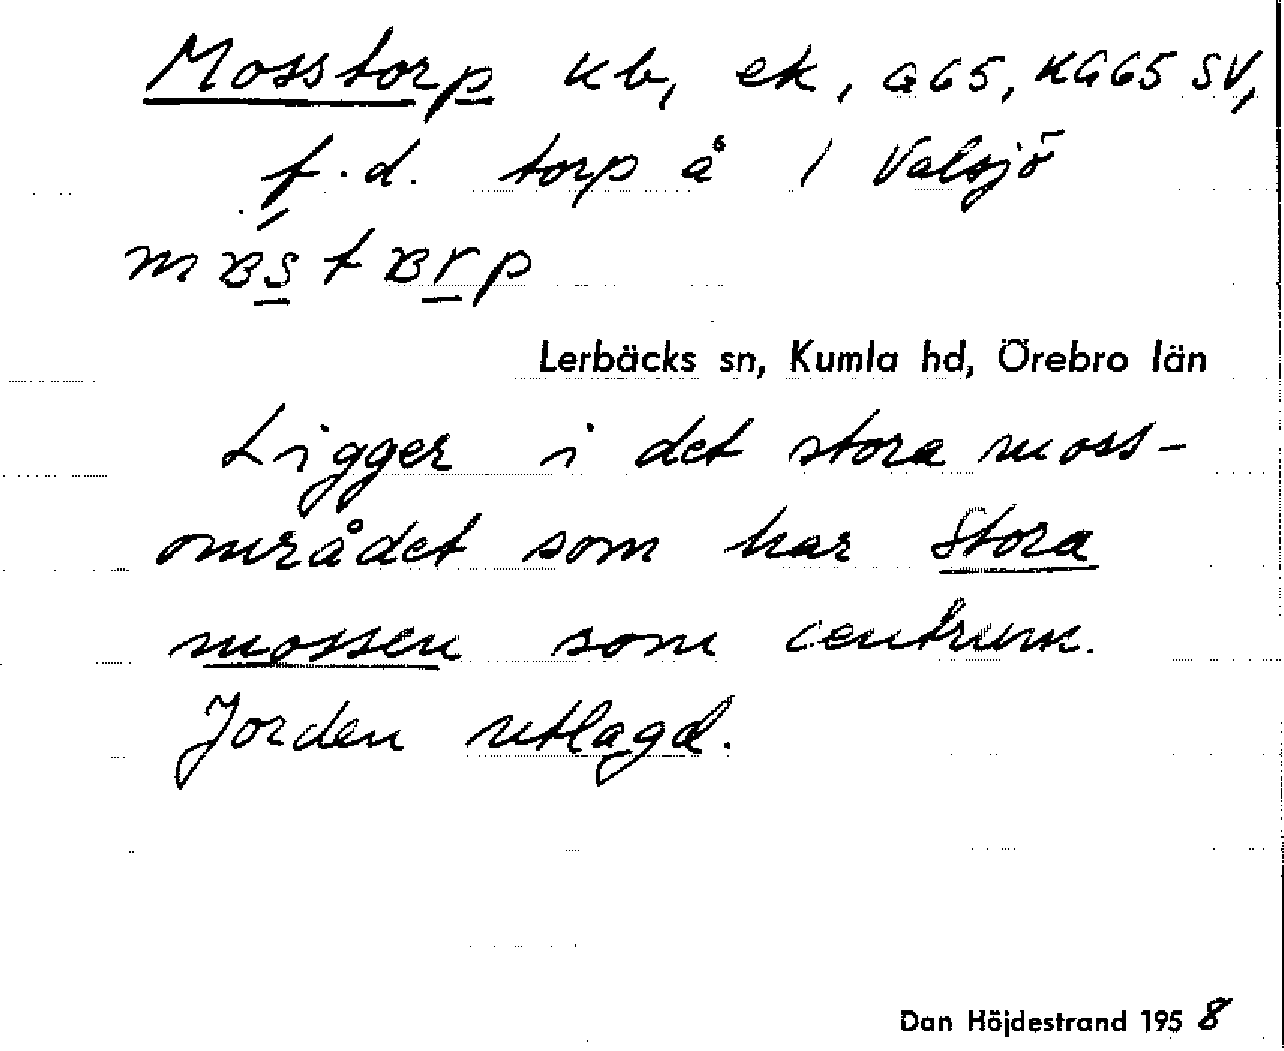 Mosstorp kb, ek, G65, KG65 SV,
f.d. torp å 1 Valsjö
mʙstʙrp
Lerbäcks sn, Kumla hd, Örebro län
Ligger i det stora moss-
området som har Stora
mossen som centrum.
Jorden utlagd.
Dan Höjdestrand 1958